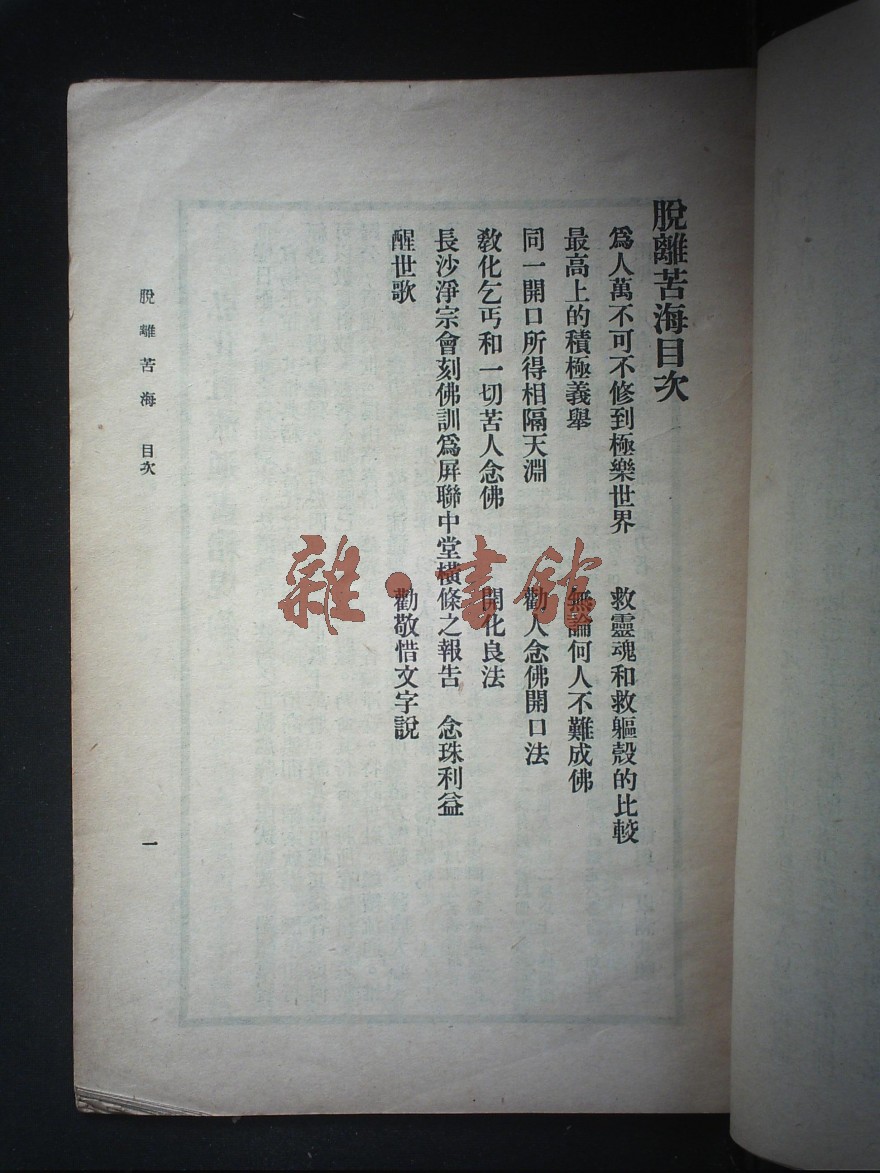 脫離苦海目次
爲人萬不可不修到極樂世界　救靈魂和救軀殼的比較
最高上的積極義舉　無論何人不難成佛
同一開口所得相隔天淵　勸人念佛開口法
敎化乞丐和一切苦人念佛　開化良法
長沙淨宗會刻佛訓爲屏聯中堂橫條之報告　念珠利益
醒世歌　勸敬惜文字說
脫離苦海　目次
一
雜·書館